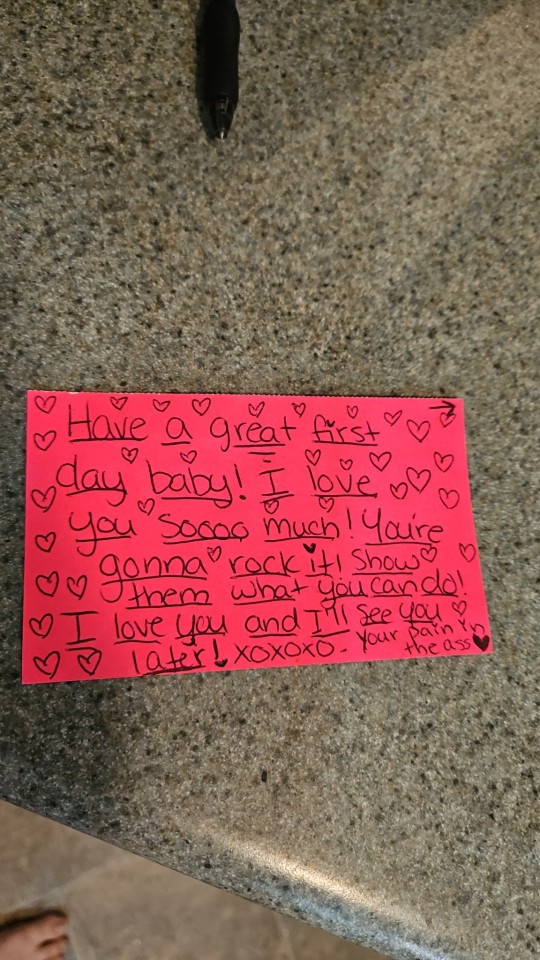 Have a great first
day baby! I love
you Soooo much! You're
gonna rock it! Show
them what you can do!
I love you and I'll See you
later! XOXOXO - Your pain in
the ass